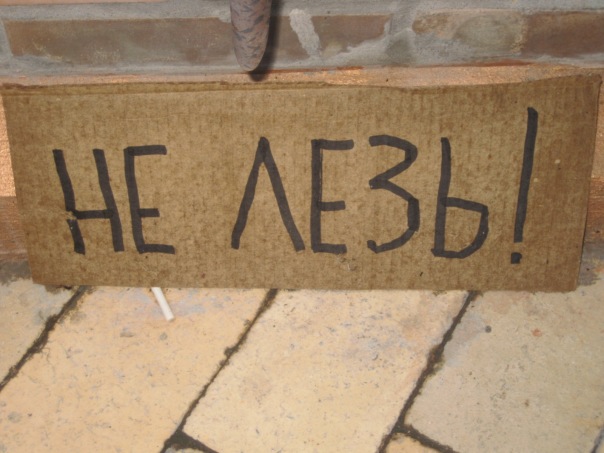 НЕ ЛЕЗЬ!